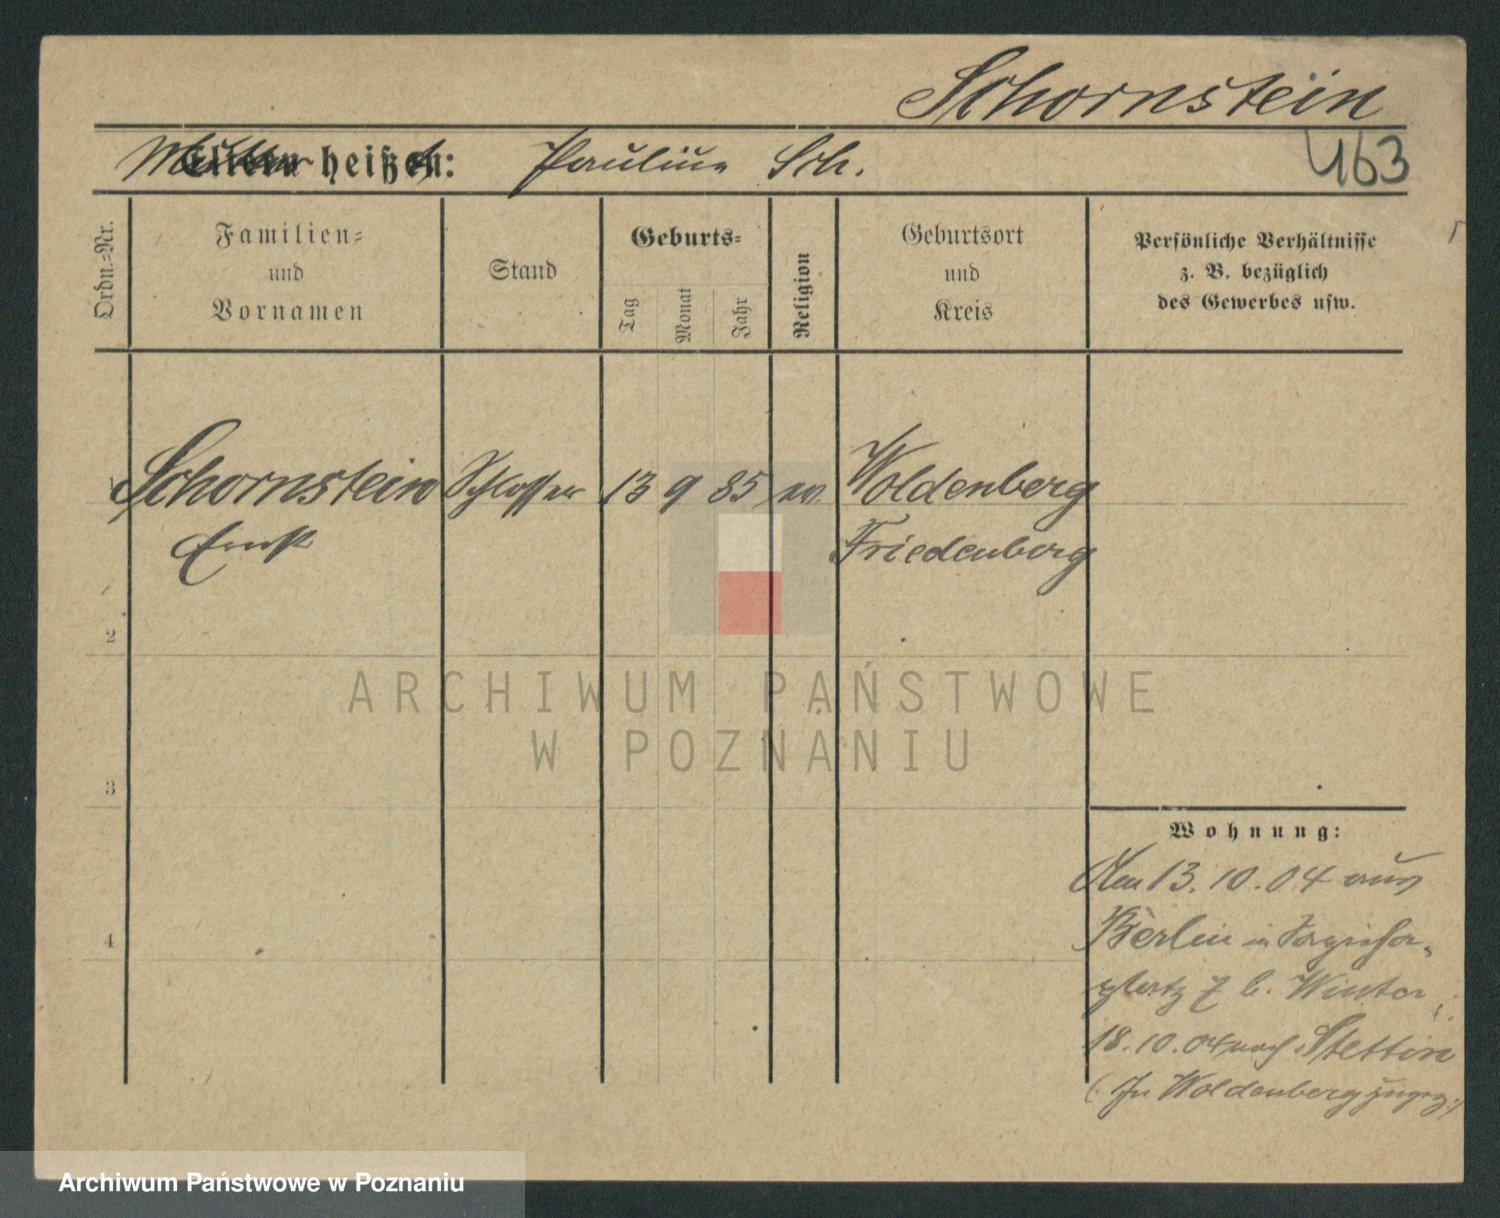 Schornstein
Mutter heißt: Pauline Sch.
463
Ordn.=Nr.
Familien=
und
Vornamen
Stand
Geburts=
Tag
Monat
Jahr
Religion
Geburtsort
und
Kreis
Persönliche Verhältnisse
z. B. bezüglich
des Gewerbes usw.
1 Schornstein Schlosser 13 9 85 ev. Woldenberg
Ernst Friedenberg
2
3
4
Wohnung:
Am 13.10.04 aus
Berlin in
platz 7 b. Winter,
18.10.04 nach Stettin
(In Woldenberg zugez.)
ARCHIWUM PAŃSTWOWE
W POZNANIU
Archiwum Państwowe w Poznaniu